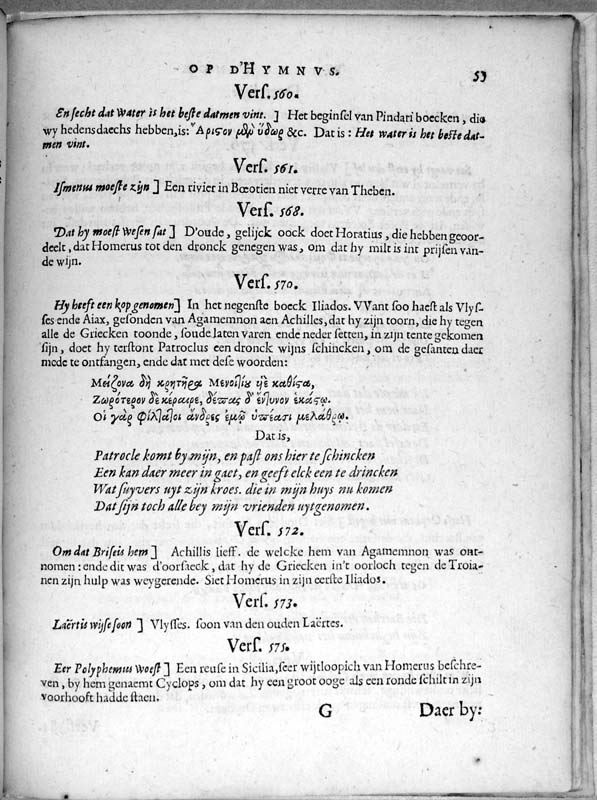 OP D'HYMNVS. 53
Vers. 560.
En secht dat Water is het beste datmen vint. ] Het beginsel van Pindari boecken, die
wy hedensdaechs hebben, is: Ἄριστον μὲν ὕδωρ &c. Dat is: Het water is het beste dat-
men vint.
Vers. 561.
Ismenus moeste zijn ] Een rivier in Bœotien niet verre van Theben.
Vers. 568.
Dat hy moest Wesen sat ] D'oude, gelijck oock doet Horatius, die hebben geoor-
deelt, dat Homerus tot den dronck genegen was, om dat hy milt is int prijsen van-
de wijn.
Vers. 570.
Hy heeft een kop genomen] In het negenste boeck Iliados. VVant soo haest als Vlys-
ses ende Aiax, gesonden van Agamemnon aen Achilles, dat hy zijn toorn, die hy tegen
alle de Griecken toonde, soude laten varen ende neder setten, in zijn tente gekomen
sijn, doet hy terstont Patroclus een dronck wijns schincken, om de gesanten daer
mede te ontfangen, ende dat met dese woorden:
Μείζονα δὴ κρητῆρα Μενοιτίου υἱὲ καθίστα,
Ζωρότερον δὲ κέραιρε, δέπας δ' ἔντυνον ἑκάστῳ.
Οἱ γὰρ φίλτατοι ἄνδρες ἐμῷ ὑπέασι μελάθρῳ.
Dat is,
Patrocle komt by mijn, en past ons hier te schincken
Een kan daer meer in gaet, en geeft elck een te drincken
Wat suyvers uyt zijn kroes. die in mijn huys nu komen
Dat sijn toch alle bey mijn vrienden uytgenomen.
Vers. 572.
Om dat Briseis hem ] Achillis lieff. de welcke hem van Agamemnon was ont-
nomen: ende dit was d'oorsaeck, dat hy de Griecken in't oorloch tegen de Troia-
nen zijn hulp was weygerende. Siet Homerus in zijn eerste Iliados.
Vers. 573.
Laërtis wijse soon ] Vlysses. soon van den ouden Laërtes.
Vers. 575.
Eer Polyphemus Woest ] Een reuse in Sicilia, seer wijtloopich van Homerus beschre-
ven, by hem genaemt Cyclops, om dat hy een groot ooge als een ronde schilt in zijn
voorhooft hadde staen.
G Daer by: